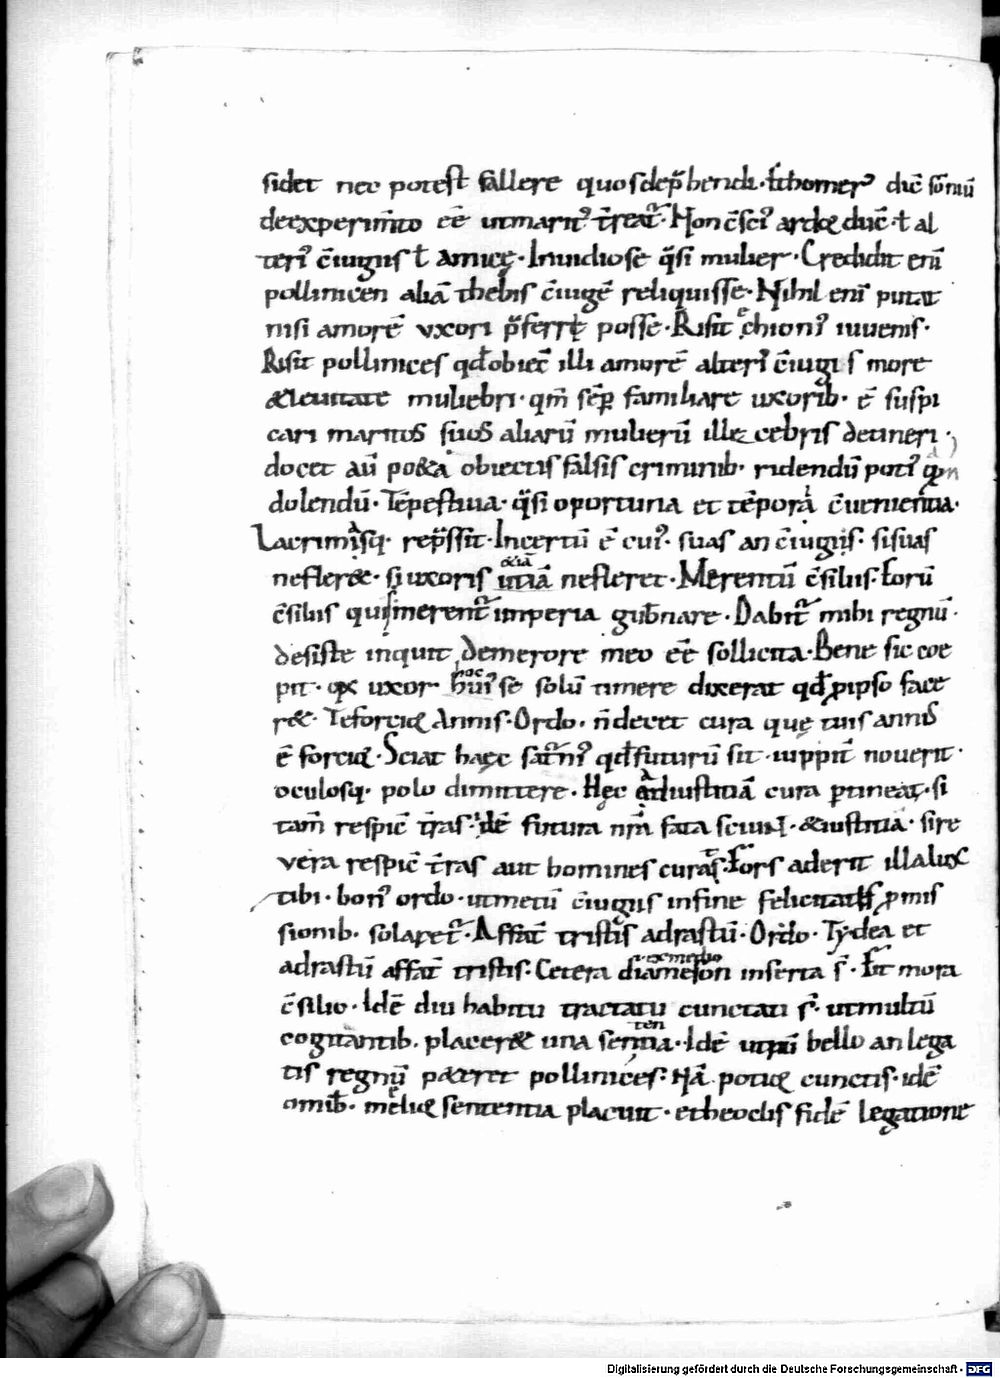 sidet nec potest fallere quos dep̃hendi · ł homerꝰ dic̃ sõniũ
de experim̃to eẽ ut maritꝰ t̃reat᷑ · Non c̃sciꝰ ardoꝗ duc̃ · ł al
teriꝰ c̃iugis ł amicę · Inuidiose q̃si mulier · Credidit eni͂
pollinicen aliã thebis c̃iugẽ reliquisse · Nihil eni͂ putat
nisi amorẽ uxori p̃ferre posse · Risit echioniꝰ iuuenis ·
Risit pollinices qđ obiec̃ illi amorẽ alteriꝰ c̃iugis more
& leuitate muliebri · qm̃ sẽꝑ familiare uxorib · ẽ suspi
cari maritos suos aliarũ mulierũ illecebris detineri ·
docet aũ po&a obiectis falsis criminib · ridendũ potiꝰ qm̃
dolendũ · Tẽpestiua · q̃si oportuna et tẽpora c̃uenientia ·
Lacrimasq · rep̃ssit · Incertũ ẽ cuiꝰ · suas an c̃iugis · si suas
ne fler& · si uxoris ut iã ne fleret · Merentũ c̃siliis · Eorũ
c̃siliis qui merent᷑ imperia gub̃nare · Dabit᷑ mihi regnũ ·
desiste inquit de merore meo eẽ sollicita · Bene sic coe
pit · qꝫ uxor hoc se solũ timere dixerat qđ ꝓ ipso face
r& · Te forciꝗ Annis · Ordo · ñ decet cura quę tuis annis
ẽ forciꝗ · Sciat haec sat̃niꝰ qđ futurũ sit · iuppit̃ nouerit ·
oculosq · polo dimittere · Hęc ad iustitiã cura ꝑtineat · si
tam̃ respic̃ t̃ras · idẽ futura nr̃a fata sciunt · & iustitia · si re
uera respic̃ t̃ras aut homines curas · Fors aderit illa lux
tibi · bonꝰ ordo · ut metũ c̃iugis in fine felicitatis ꝓmis
sionib · solaret᷑ · Affat᷑ tristis adrastũ · Ordo · Tydea et
adrastũ affat᷑ tristis · Cetera dia meson inserta s̃ · Fit mora
c̃silio · Idẽ diu habitu tractatu cunctati s̃ · ut multũ
cogitantib · placer& una sententia · Idẽ utꝝ bello an lega
tis regnũ peteret pollinices · Hã potiꝗ cunctis · idẽ
omib̃ · meliꝗ sententia placuit · etheoclis fidẽ legatione
Digitalisierung gefördert durch die Deutsche Forschungsgemeinschaft - DFG